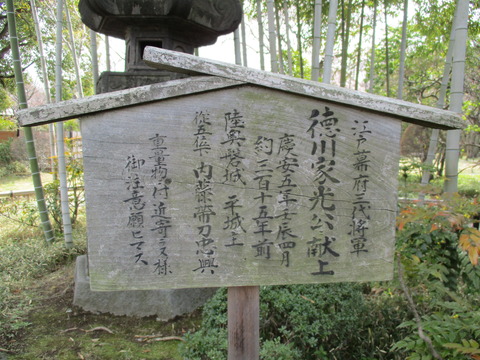 江戸幕府三代将軍
徳川家光公献上
慶安五年壬辰四月
約三百十五年前
陸奥磐城 平城主
従五位下 内藤帯刀忠興
重量物ニ付近寄ラヌ様
御注意願ヒマス